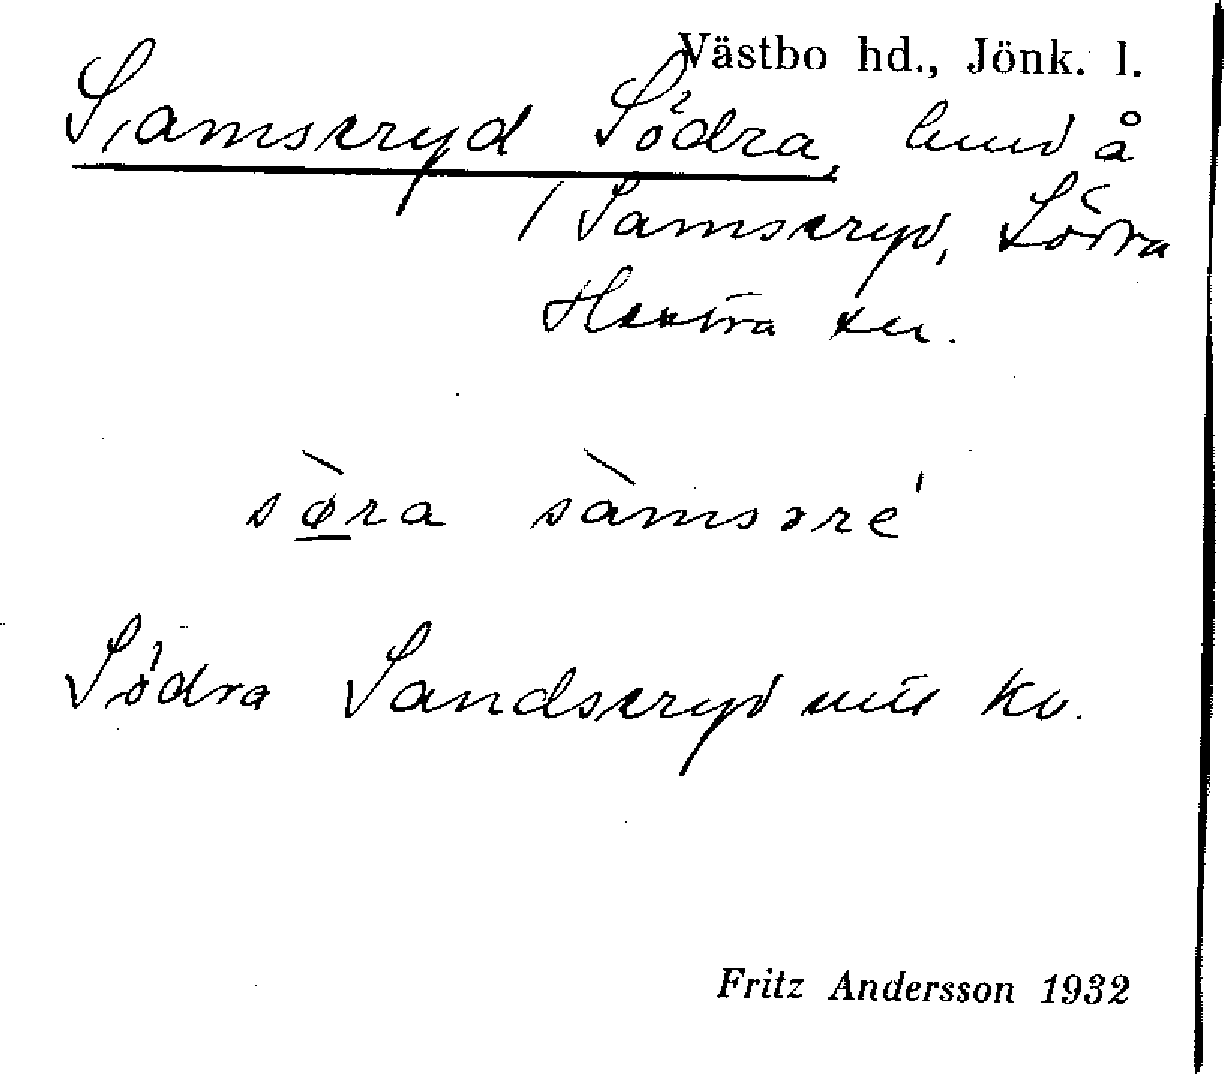 Västbo hd., Jönk. l.
Samseryd Södra, lund å
/ Samseryd, Södra
Hestra sn.
sø̀ra sàmsəre'
Södra Sandseryd mtl Kv.
Fritz Andersson 1932